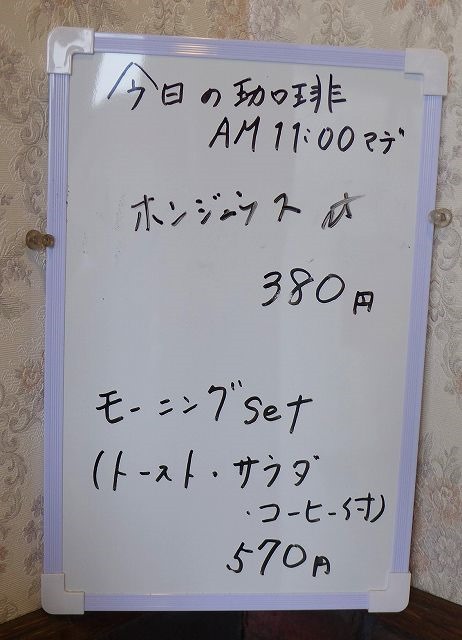 今日の珈琲
AM 11:00マデ
ホンジュラス
380円
モーニングset
(トースト・サラダ
・コーヒー付)
570円